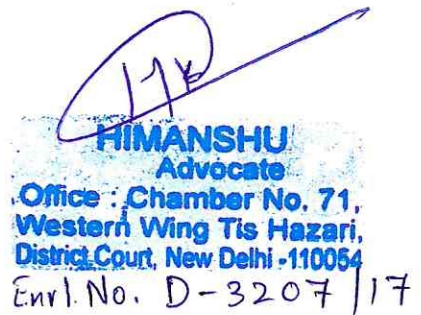 HIMANSHU
Advocate
Office : Chamber No. 71,
Western Wing Tis Hazari,
District Court, New Delhi -110054
Enrl. No. D-3207/17